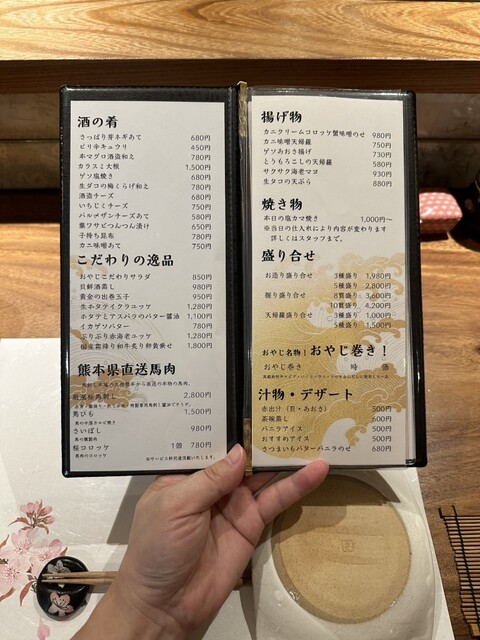 酒の肴
さっぱり芽ネギあて 680円
ピリ辛キュウリ 450円
本マグロ酒盗和え 780円
カラスミ大根 1,500円
ゲソ塩焼き 680円
生ダコの梅くらげ和え 780円
酒盗チーズ 680円
いちじくチーズ 750円
パルメザンチーズあて 580円
葉ワサビつんつん漬け 650円
子持ち昆布 780円
カニ味噌あて 750円
こだわりの逸品
おやじこだわりサラダ 850円
貝鮮酒蒸し 980円
黄金の出巻玉子 950円
生ホタテイクラユッケ 1,280円
ホタテとアスパラのバター醤油 1,100円
イカゲソバター 780円
ぷりぷり赤海老ユッケ 1,280円
国産霜降り和牛炙り卵黄乗せ 1,800円
熊本県直送馬肉
厳選桜馬刺し 2,800円
馬ひも 1,500円
さいぼし 980円
馬の燻製肉
桜コロッケ 1個 780円
馬肉のコロッケ
※サービス料別途頂戴いたします。
揚げ物
カニクリームコロッケ蟹味噌のせ 980円
カニ味噌天婦羅 750円
ゲソあおさ揚げ 730円
とうもろこしの天婦羅 580円
サクサク海老マヨ 930円
生タコの天ぷら 880円
焼き物
本日の塩カマ焼き 1,000円〜
※当日の仕入れにより内容が変わります
詳しくはスタッフまで。
盛り合せ
お造り盛り合せ 3種盛 1,980円
5種盛 2,800円
握り盛り合せ 8貫盛 3,600円
10貫盛 4,200円
天婦羅盛り合せ 3種盛り 1,000円
5種盛り 1,500円
おやじ名物！おやじ巻き！
おやじ巻き 時価
汁物・デザート
赤出汁（貝・あおさ） 500円
茶碗蒸し 600円
バニラアイス 500円
おすすめアイス 500円
さつまいもバターバニラのせ 680円